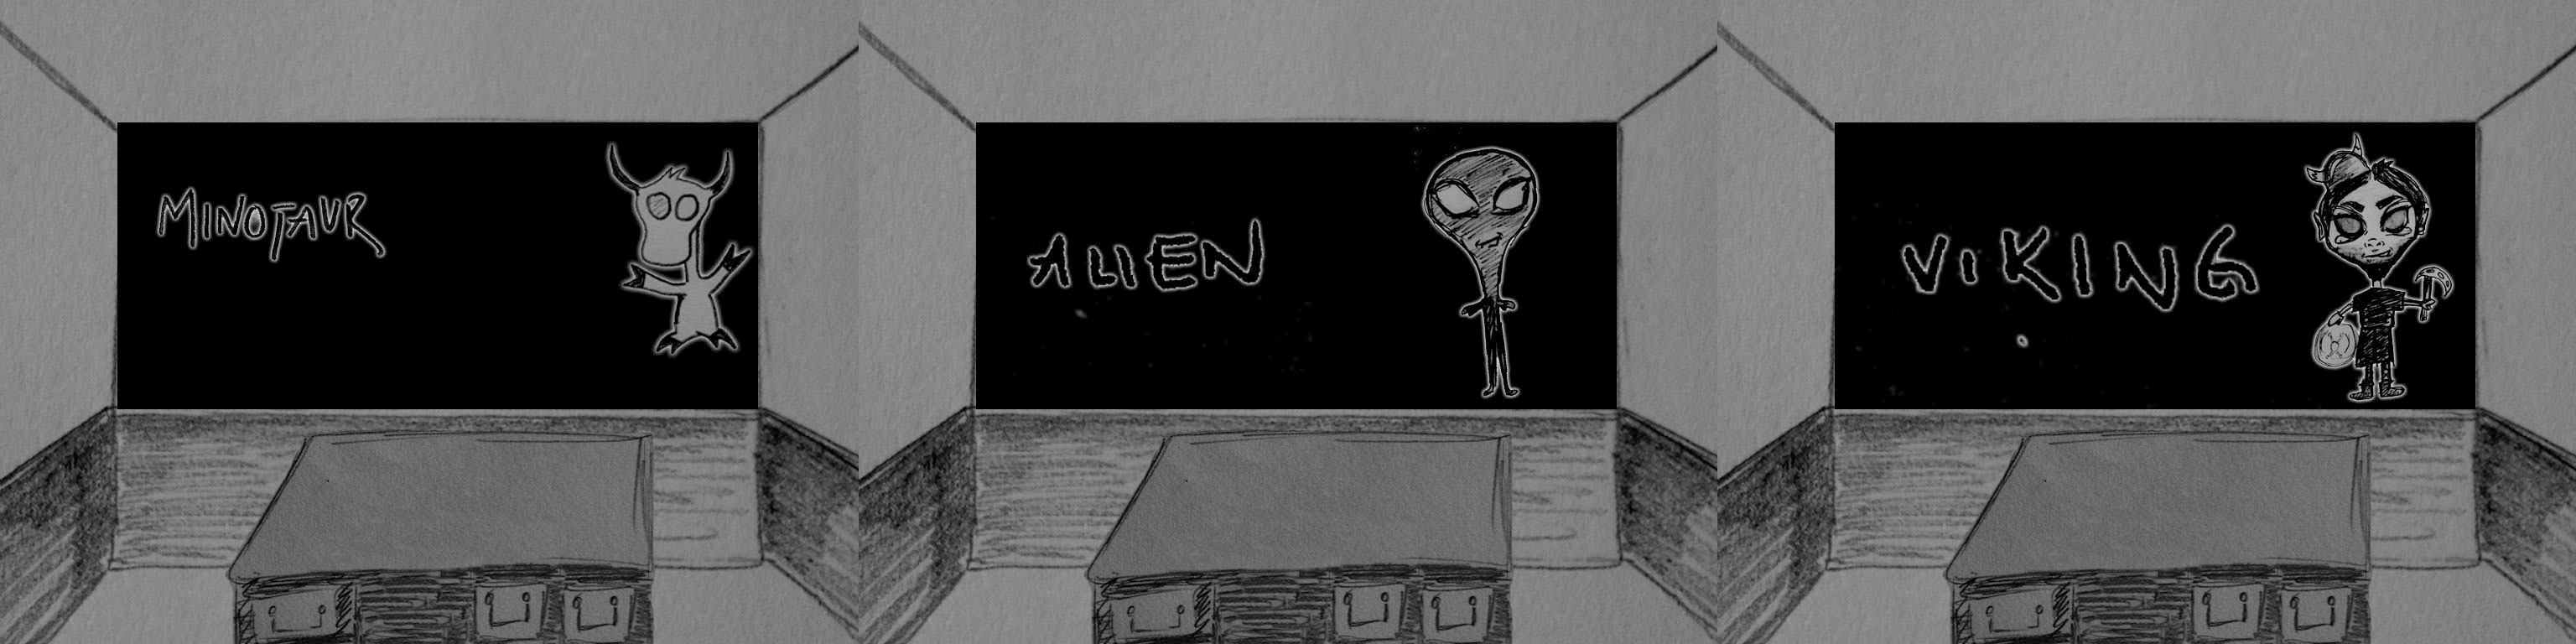 MINOTAUR
ALIEN
VIKING